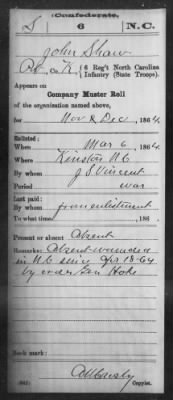 Confederate.
S 6 N.C.
John Shaw
Pvt Co K, 6 Reg't North Carolina
Infantry (State Troops).
Appears on
Company Muster Roll
of the organization named above,
for Nov & Dec, 1864.
Enlisted:
When Mar 6, 1864.
Where Kinston NC
By whom J S Vincent
Period war
Last paid:
By whom from enlistment
To what time , 186 .
Present or absent Absent
Remarks: Absent wounded
in N C since Apr 18-64
by order Gen Hoke
Book mark:
(641)
Copyist.